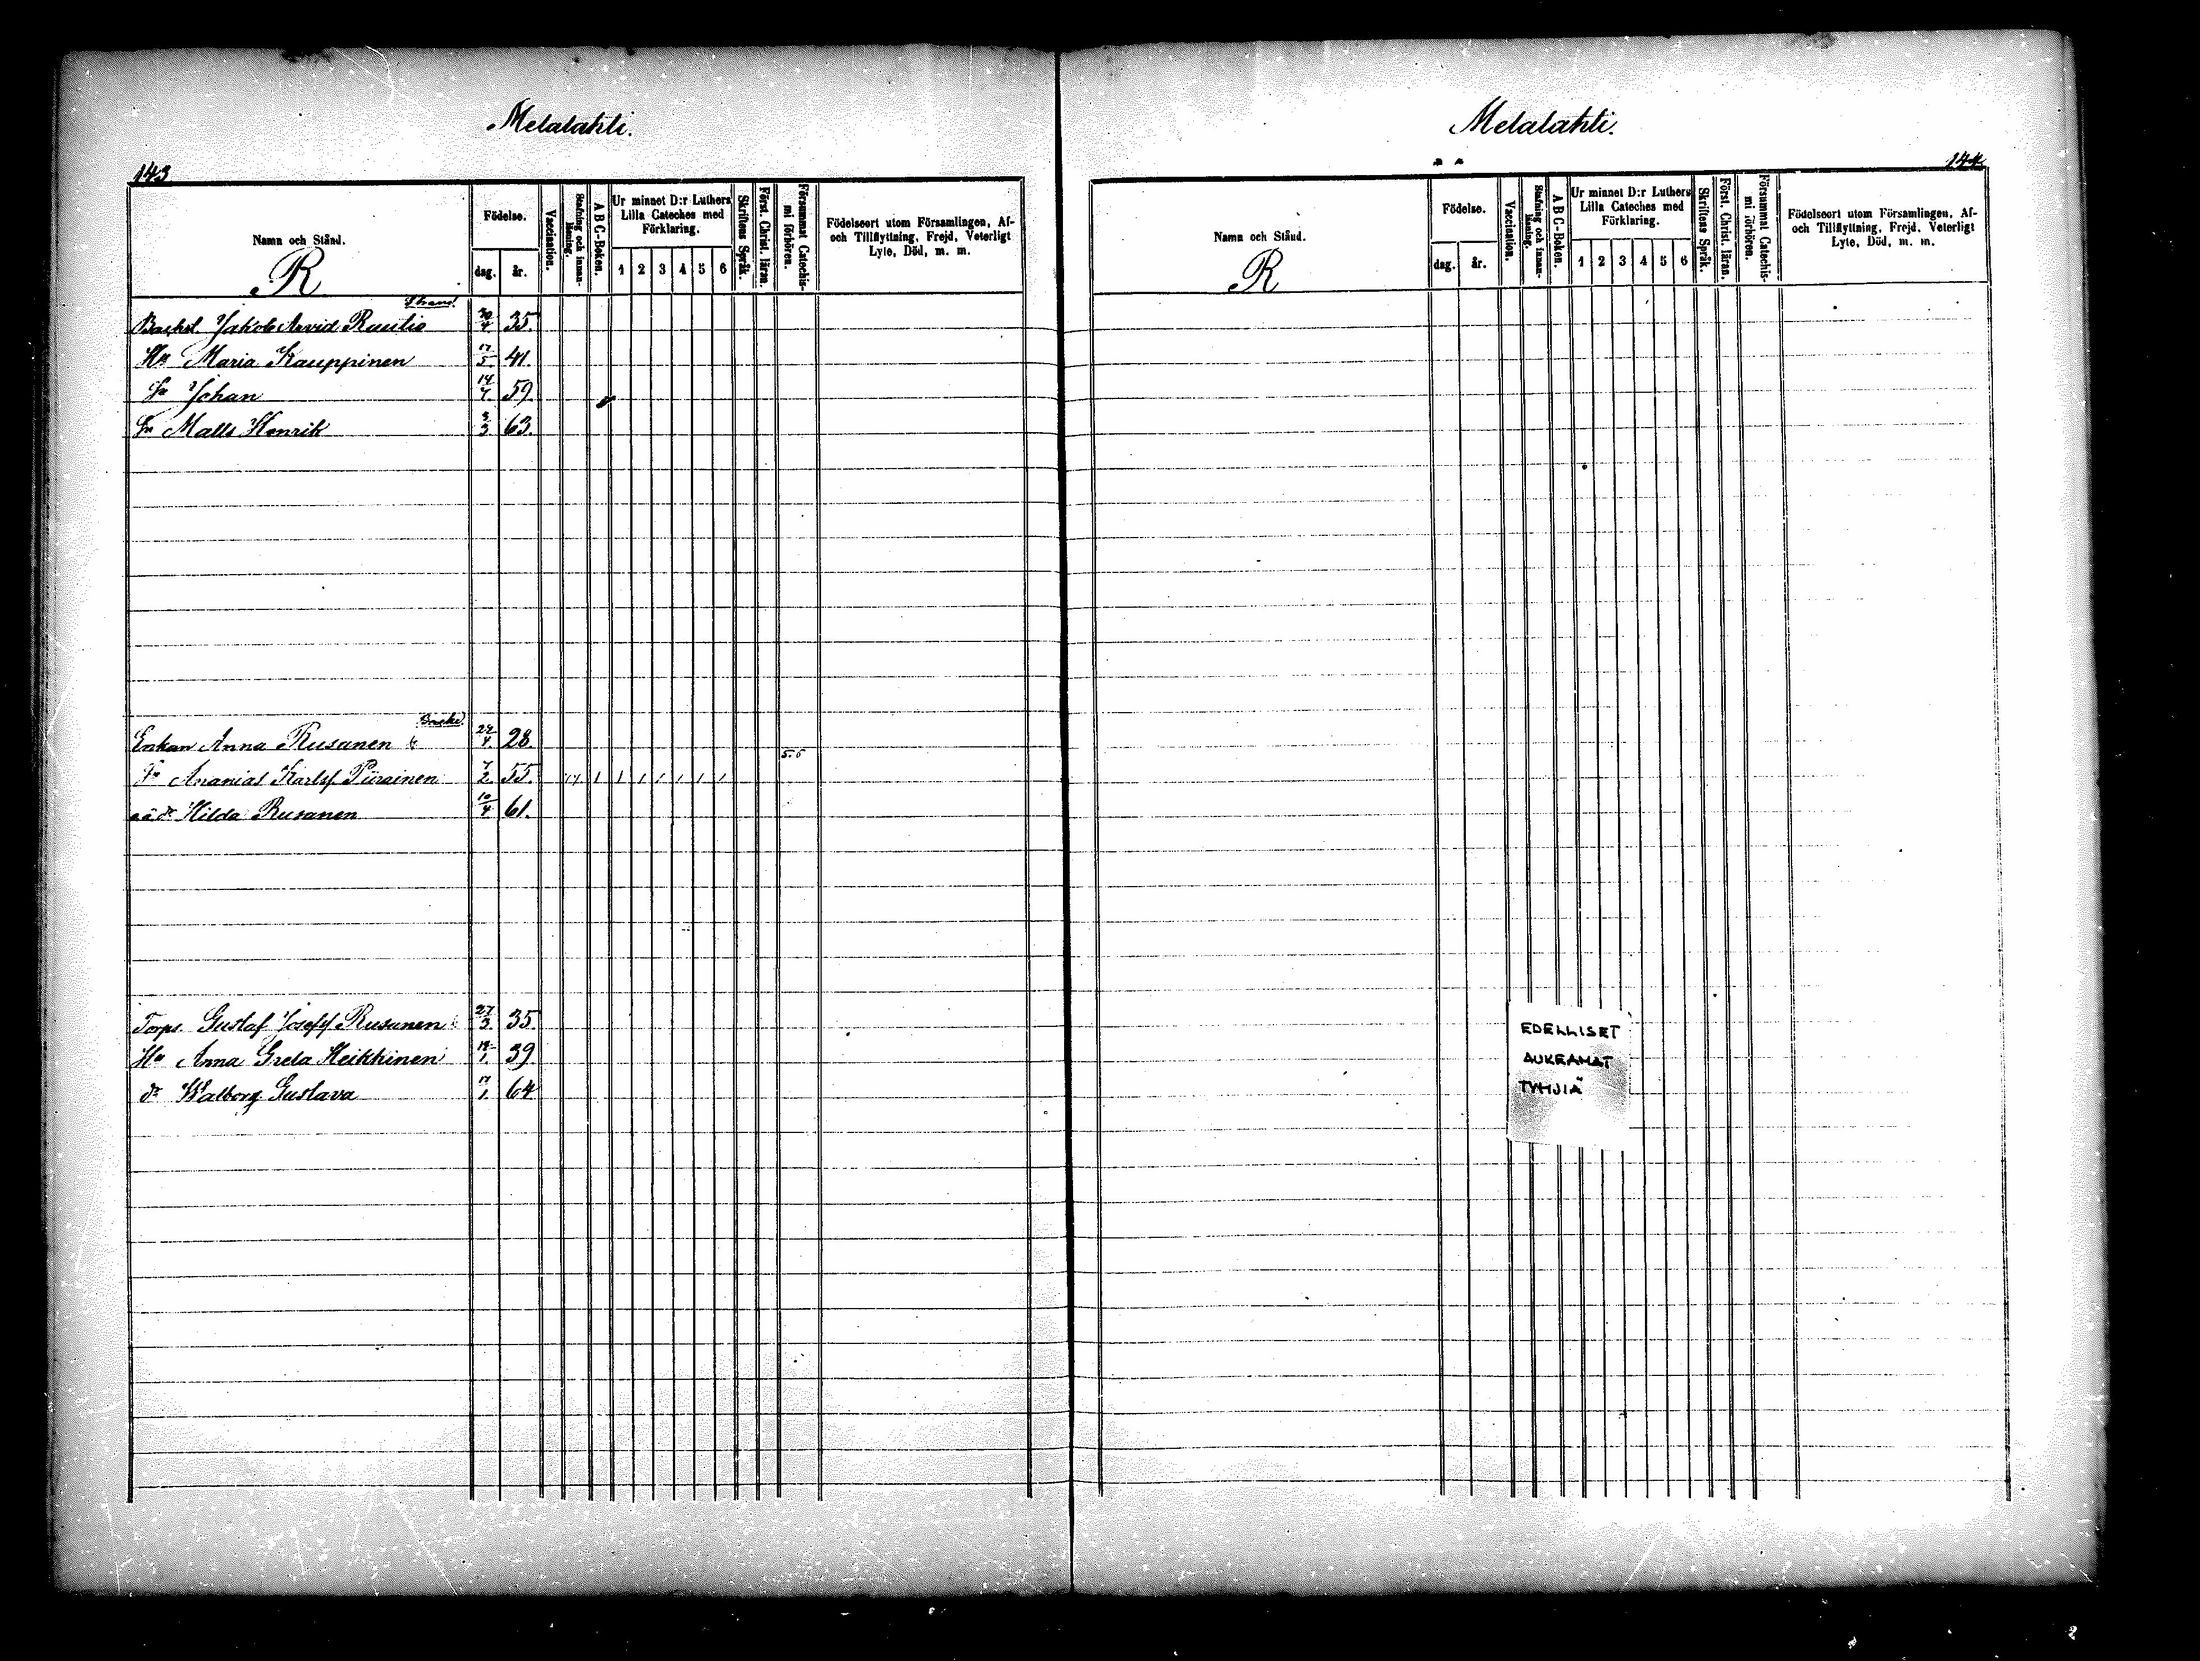 Melalahti.
143
Namn och Stånd.
R
Födelse.
dag. år.
Vaccination.
Stafning och innan-läsning.
A B C-Boken.
Ur minnet D:r Luthers Lilla Cateches med Förklaring.
1 2 3 4 5 6
Skriftens Språk.
Först. Christ. läran.
Försummat Catechismi förhören.
Födelseort utom Församlingen, Af- och Tillflyttning, Frejd, Veterligt Lyte, Död, m. m.
Strand.
Jakob Arvid Rautio 30/4 35.
Hu Maria Kauppinen 17/5 41.
Sn Johan 14/4 59.
Sn Matts Henrik 3/3 63.
Backe.
Enkan Anna Rusanen 24/4 28.
5. 6
Sn Ananias Karlss. Piirainen 7/2 55.
oä dr Hilda Rusanen 10/4 61.
Torps. Gustaf Josefss. Rusanen 27/3 35.
Hu Anna Greta Heikkinen 18/1 39.
dr Walborg Gustava 17/1 64
Melalahti.
144
Namn och Stånd.
R
Födelse.
dag. år.
Vaccination.
Stafning och innan-läsning.
A B C-Boken.
Ur minnet D:r Luthers Lilla Cateches med Förklaring.
1 2 3 4 5 6
Skriftens Språk.
Först. Christ. läran.
Försummat Catechismi förhören.
Födelseort utom Församlingen, Af- och Tillflyttning, Frejd, Veterligt Lyte, Död, m. m.
EDELLISET
AUKEAMAT
TYHJIÄ
2